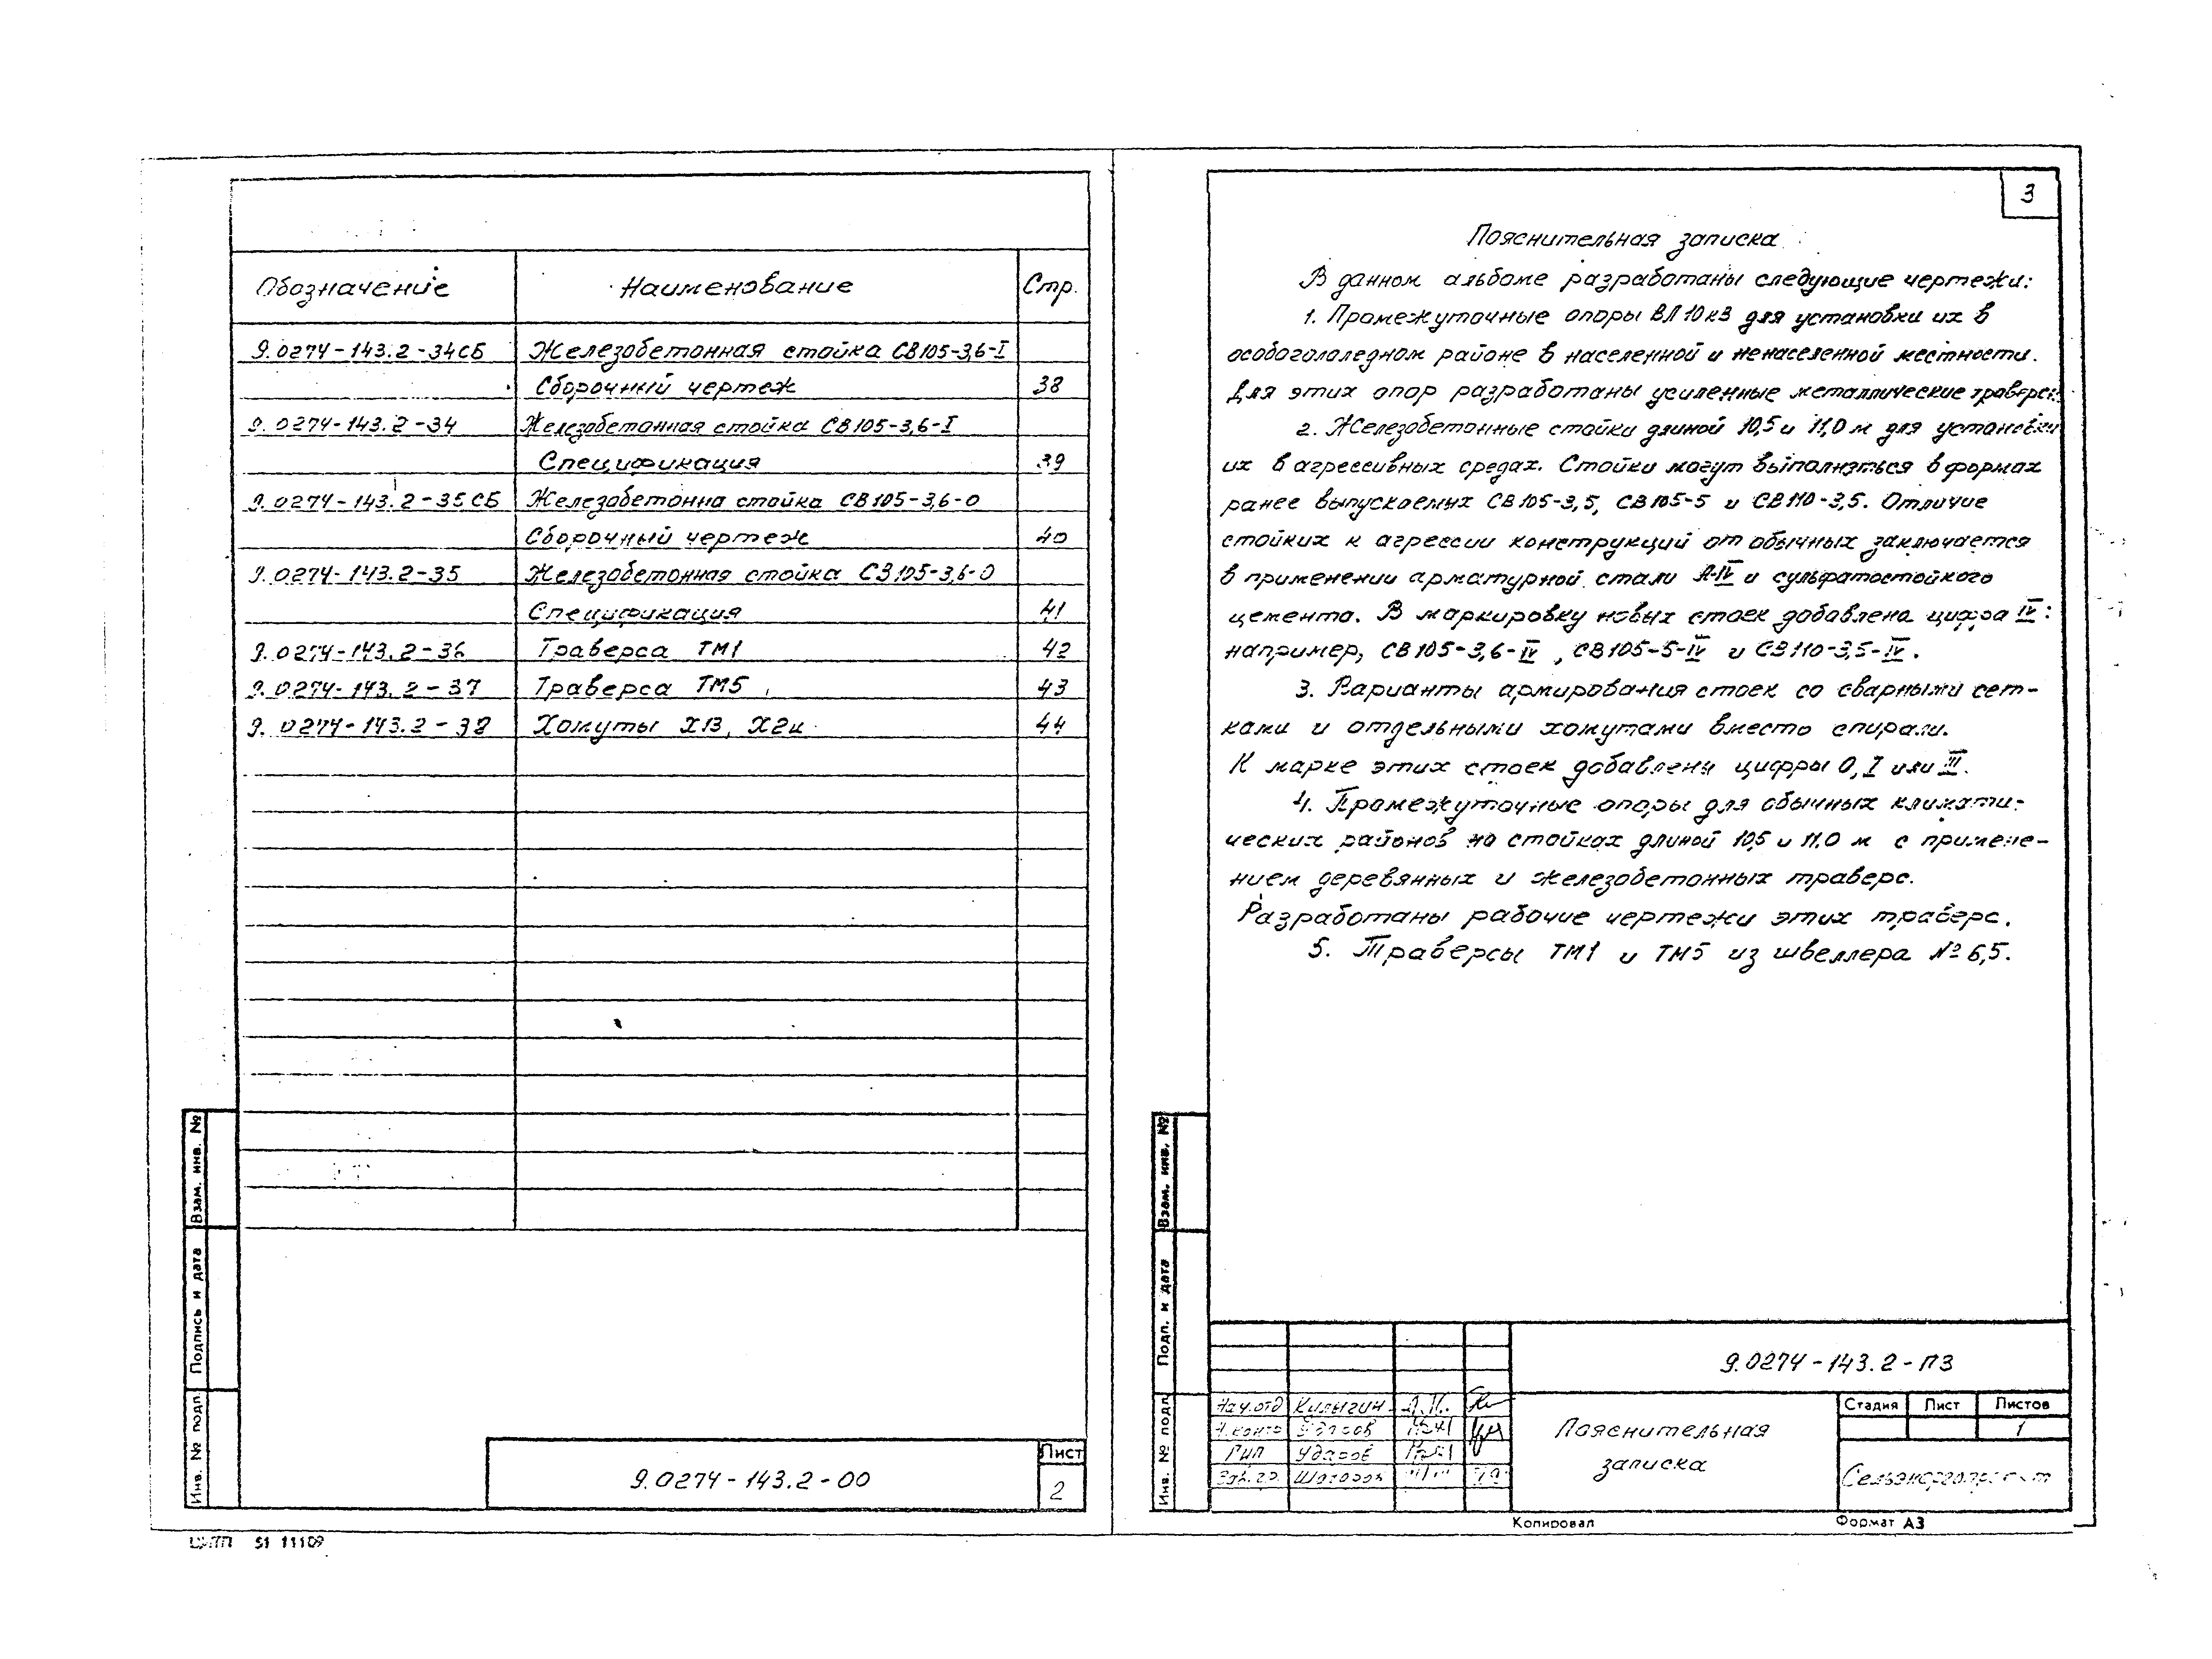 Обозначение Наименование Стр.
9.0274-143.2-34СБ Железобетонная стойка СВ105-3,6-I
Сборочный чертеж 38
9.0274-143.2-34 Железобетонная стойка СВ105-3,6-I
Спецификация 39
9.0274-143.2-35СБ Железобетонна стойка СВ105-3,6-0
Сборочный чертеж 40
9.0274-143.2-35 Железобетонная стойка СВ105-3,6-0
Спецификация 41
9.0274-143.2-36 Траверса ТМ1 42
9.0274-143.2-37 Траверса ТМ5 43
9.0274-143.2-38 Хомуты Х13, Х24 44
Взам. инв. №
Подпись и дата
Инв. № подл
9.0274-143.2-00
Лист
2
51 11109
3
Пояснительная записка
В данном альбоме разработаны следующие чертежи:
1. Промежуточные опоры ВЛ 10кВ для установки их в
особогололедном районе в населенной и ненаселенной местности.
Для этих опор разработаны усиленные металлические траверсы.
2. Железобетонные стойки длиной 10,5 и 11,0 м для установки
их в агрессивных средах. Стойки могут выполняться в формах
ранее выпускаемых СВ105-3,5, СВ105-5 и СВ110-3,5. Отличие
стойких к агрессии конструкций от обычных заключается
в применении арматурной стали А-IV и сульфатостойкого
цемента. В маркировку новых стоек добавлена цифра IV:
например, СВ105-3,6-IV, СВ105-5-IV и СВ110-3,5-IV.
3. Варианты армирования стоек со сварными сет-
ками и отдельными хомутами вместо спирали.
К марке этих стоек добавлены цифры 0, I или III.
4. Промежуточные опоры для обычных климати-
ческих районов на стойках длиной 10,5 и 11,0 м с примене-
нием деревянных и железобетонных траверс.
Разработаны рабочие чертежи этих траверс.
5. Траверсы ТМ1 и ТМ5 из швеллера № 6,5.
Взам. инв. №
Подп. и дата
Инв. № подл
9.0274-143.2-ПЗ
Нач.отд Кулыгин
Н.контр Ударов
ГИП Ударов
Зав.гр.
Пояснительная
записка
Стадия Лист Листов
1
Сельэнергопроект
Копировал Формат А3